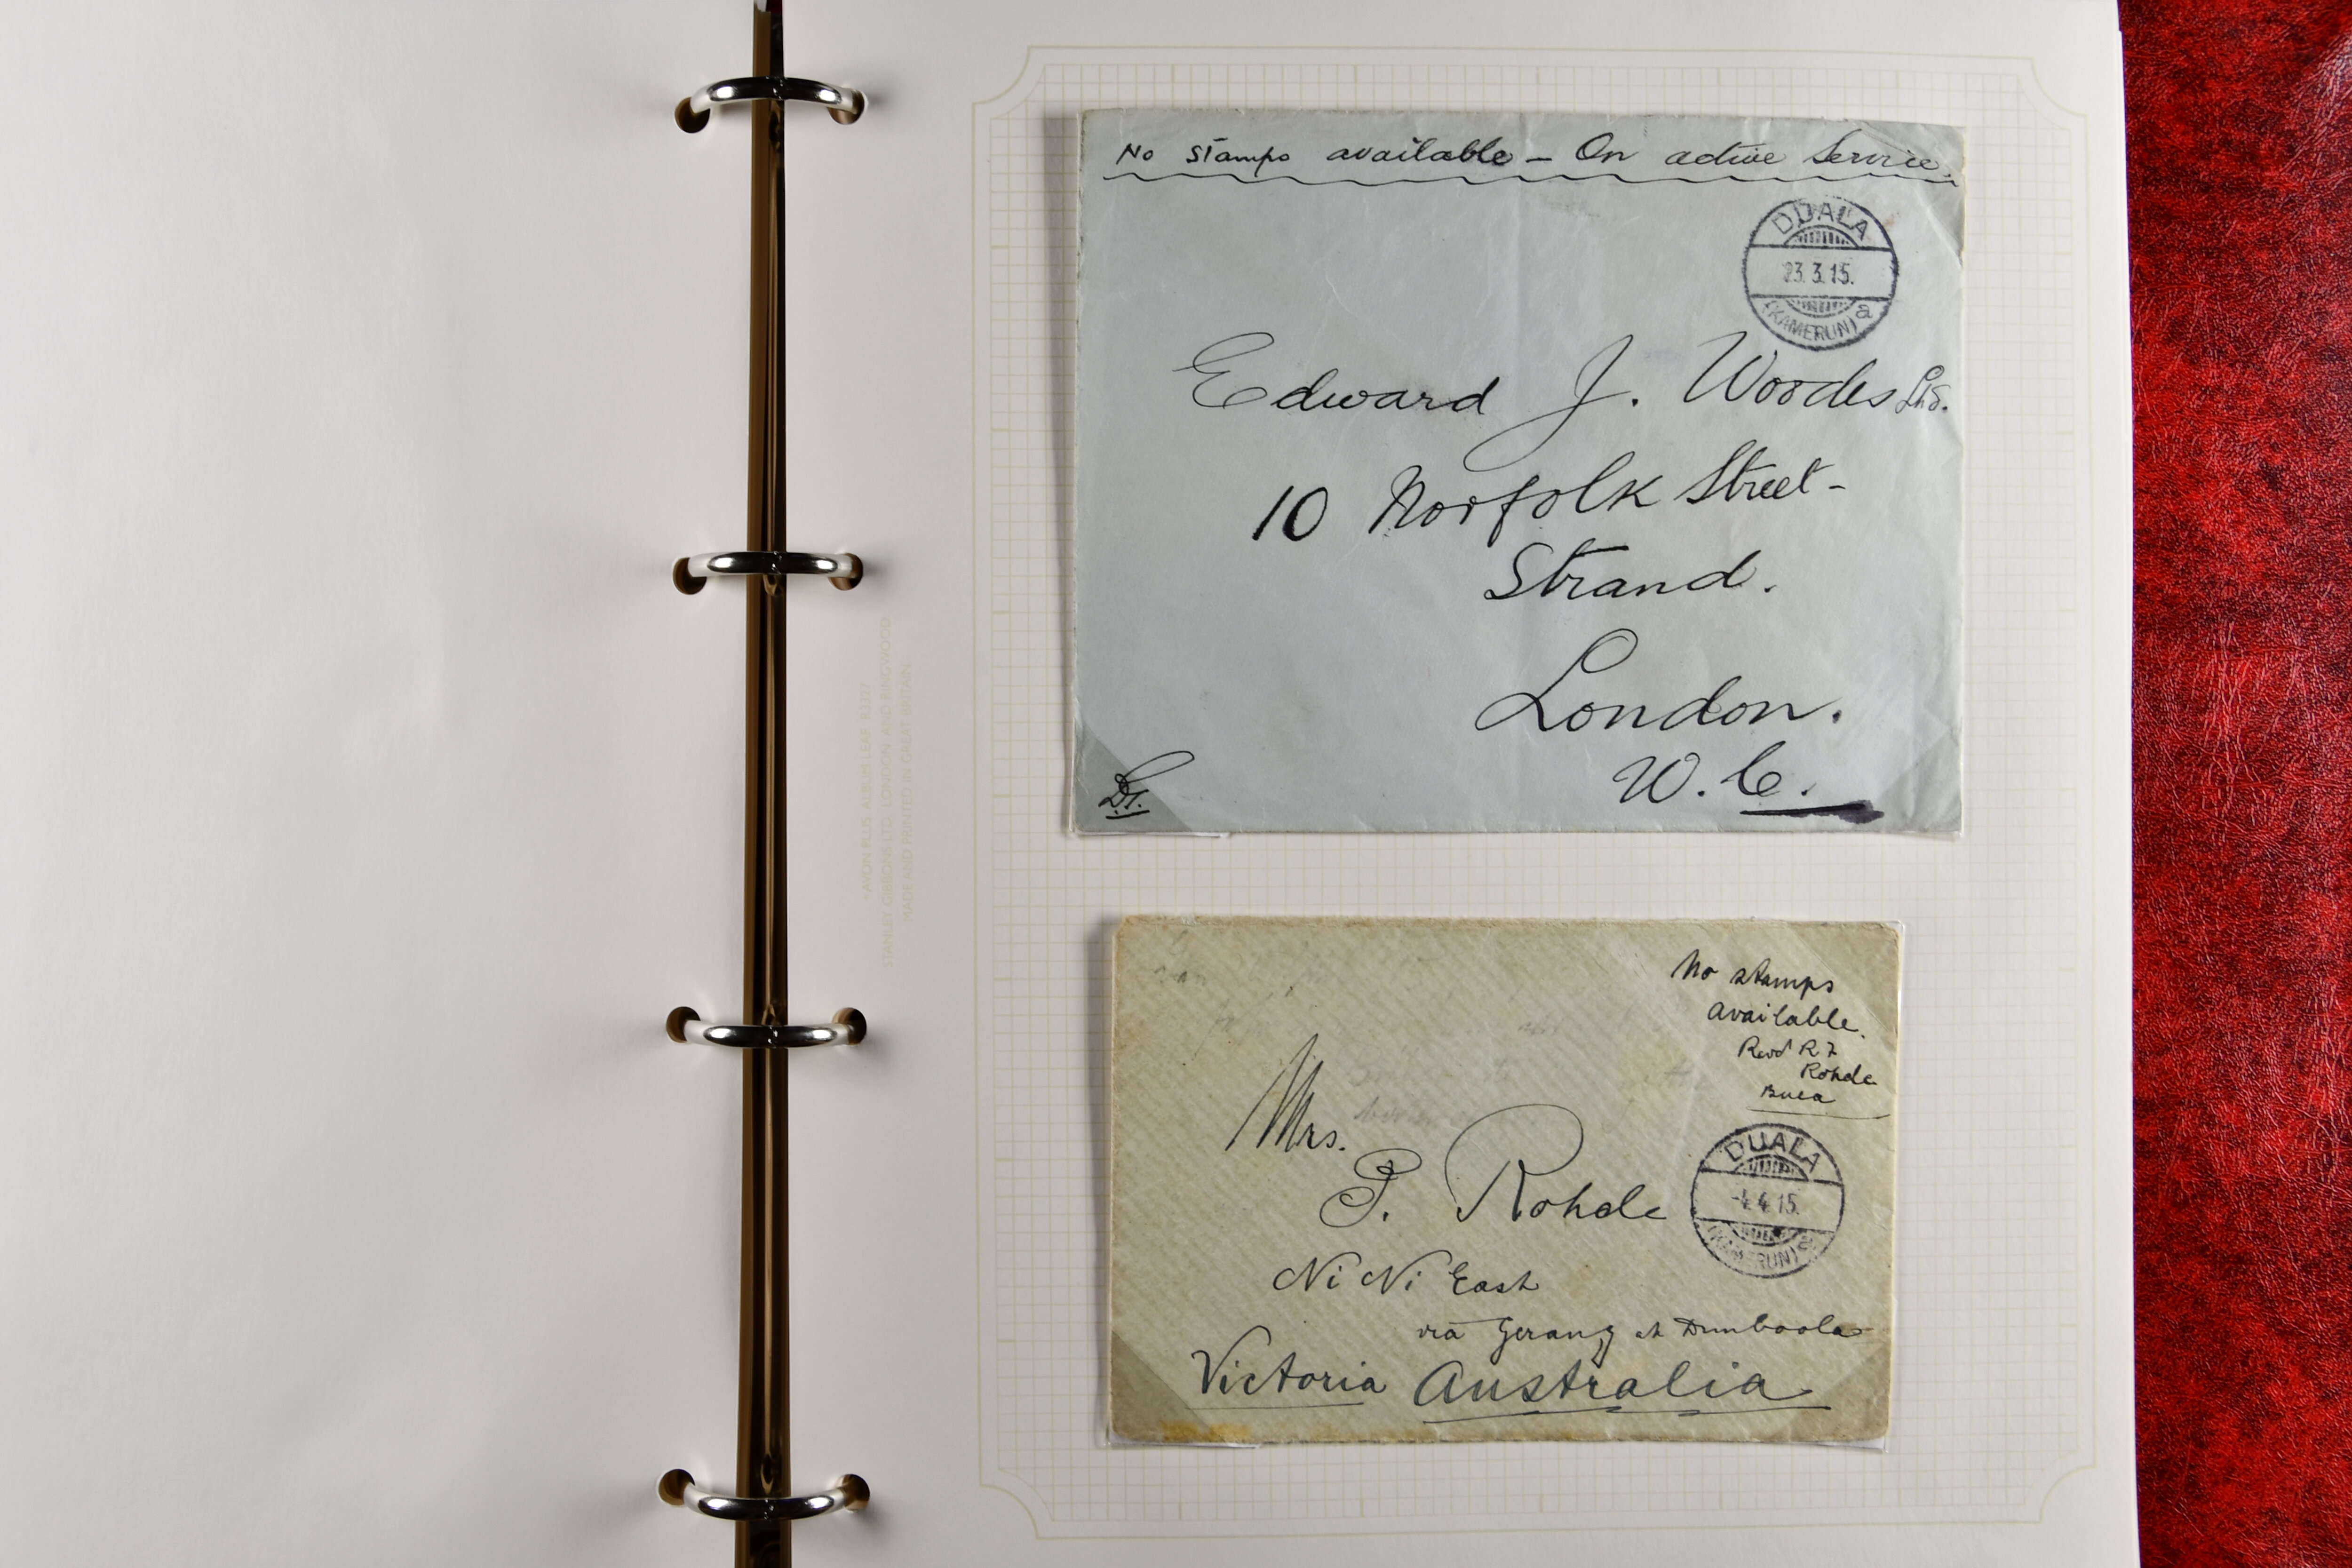 AVON PLUS ALBUM LEAF R3327
STANLEY GIBBONS LTD. LONDON AND RINGWOOD
MADE AND PRINTED IN GREAT BRITAIN
No stamps available – On active Service.
DUALA
23.3.15.
(KAMERUN) a
Edward J. Woodes
10 Norfolk Street –
Strand.
London.
W.C.
No stamps
Available.
Revd R F
Rohde
Buea
DUALA
-4.4.15.
(KAMERUN) a
Mrs.
P. Rohde
Ni Ni East
via Gerang at Dimboola
Victoria Australia